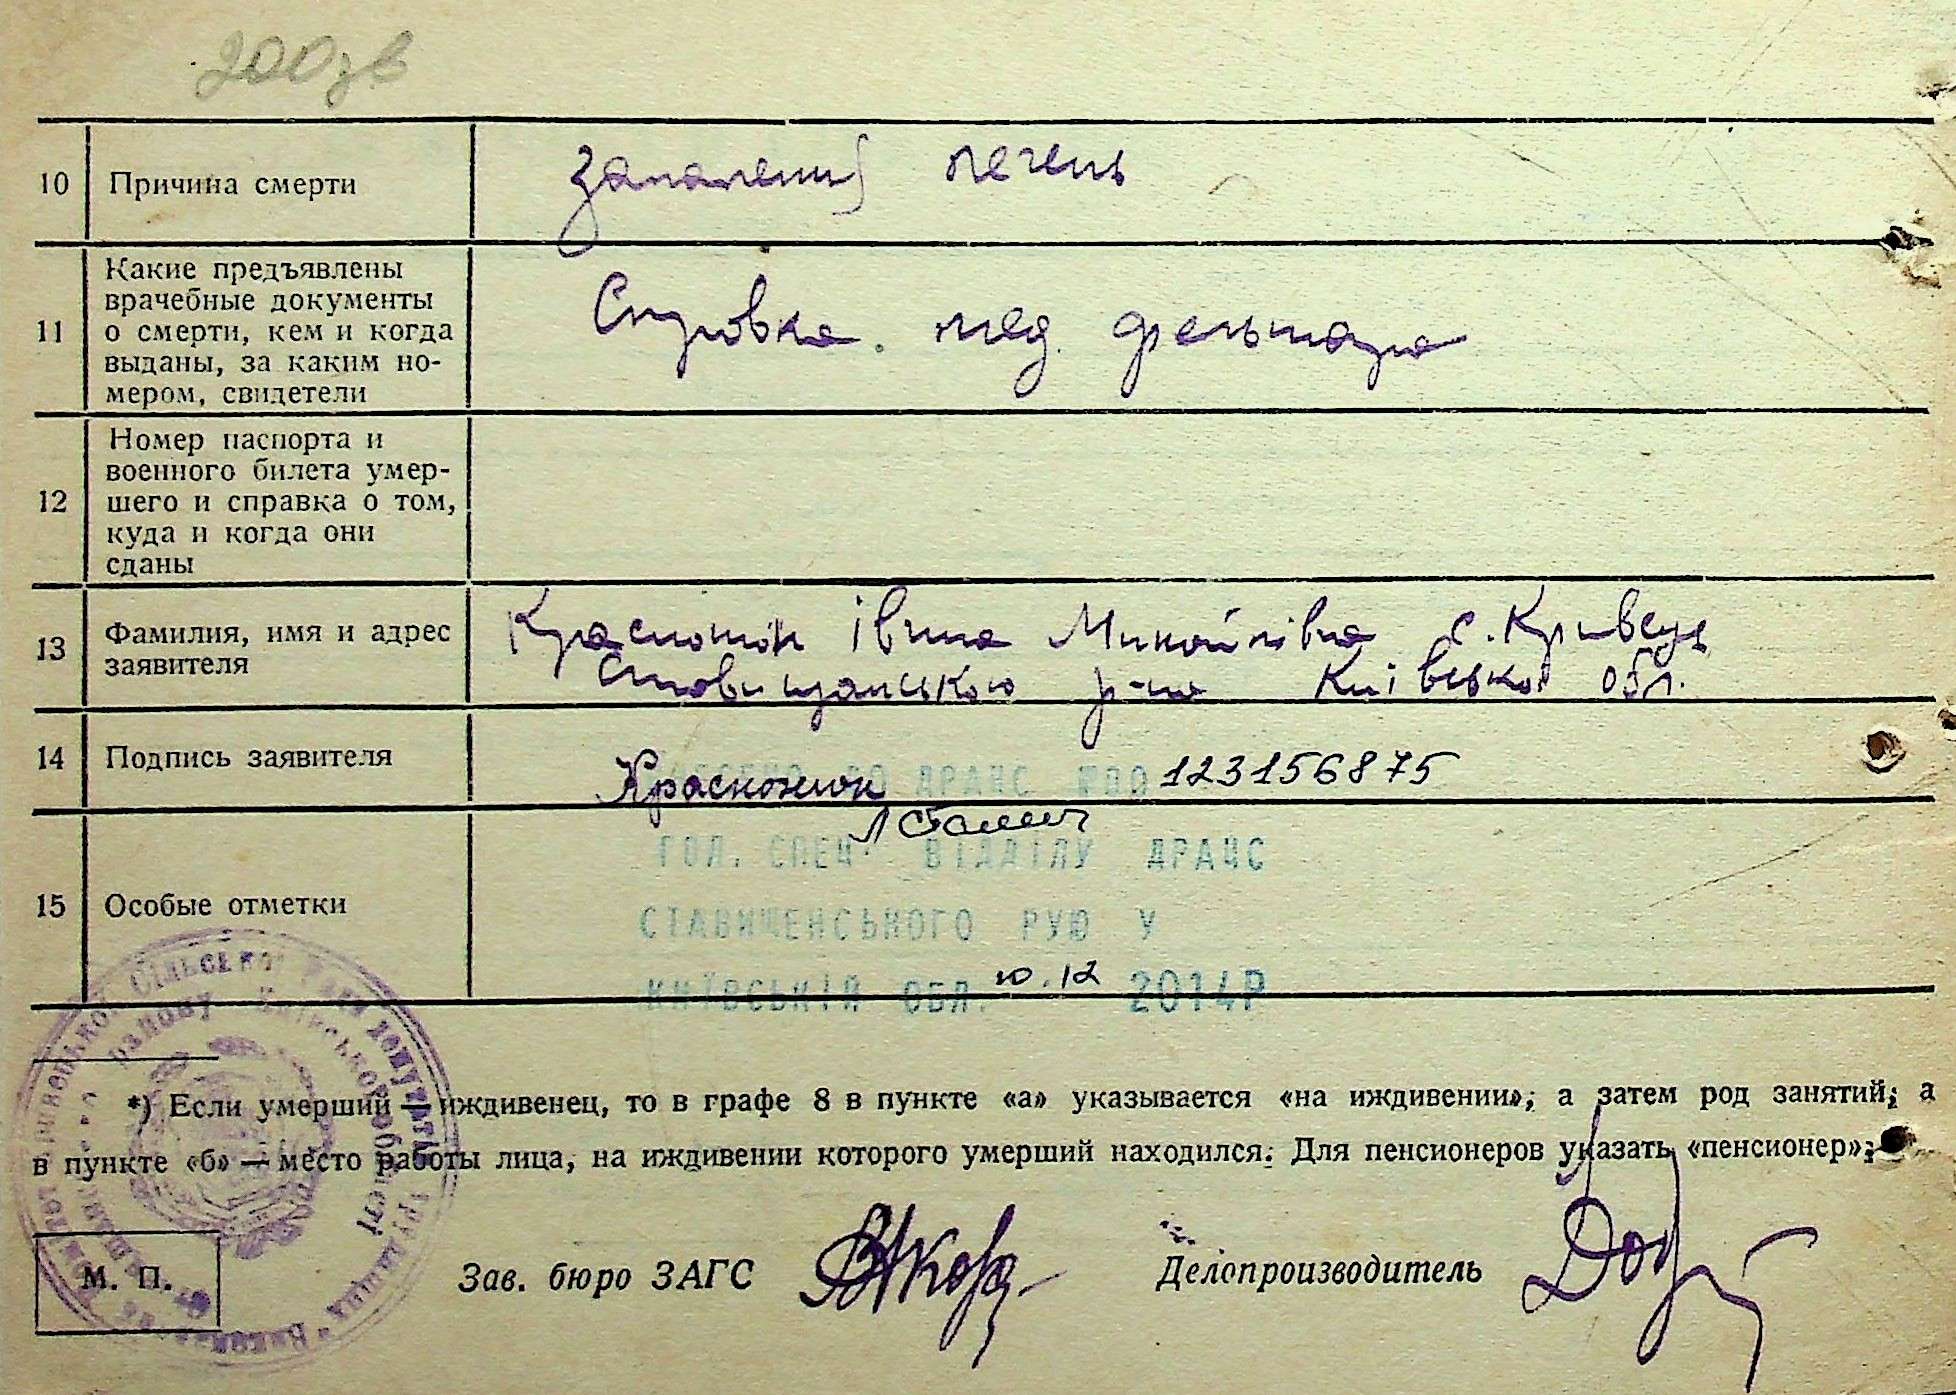 200зв
10 Причина смерти запалення печень
11 Какие предъявлены
врачебные документы
о смерти, кем и когда
выданы, за каким но-
мером, свидетели
Справка мед. фельшара
12 Номер паспорта и
военного билета умер-
шего и справка о том,
куда и когда они
сданы
13 Фамилия, имя и адрес
заявителя
Красножон Івана Миколаївна с. Кривець
Ставищанського р-на Київської обл.
14 Подпись заявителя
Красножон ДО ДРАЦС №00 123156875
15 Особые отметки
ГОЛ. СПЕЦ. ВІДДІЛУ ДРАЦС
СТАВИЩЕНСЬКОГО РУЮ У
КИЇВСЬКІЙ ОБЛ. 10.12 2014Р
*) Если умерший — иждивенец, то в графе 8 в пункте «а» указывается «на иждивении», а затем род занятий; а
в пункте «б» — место работы лица, на иждивении которого умерший находился. Для пенсионеров указать «пенсионер»;
М. П. Зав. бюро ЗАГС Делопроизводитель